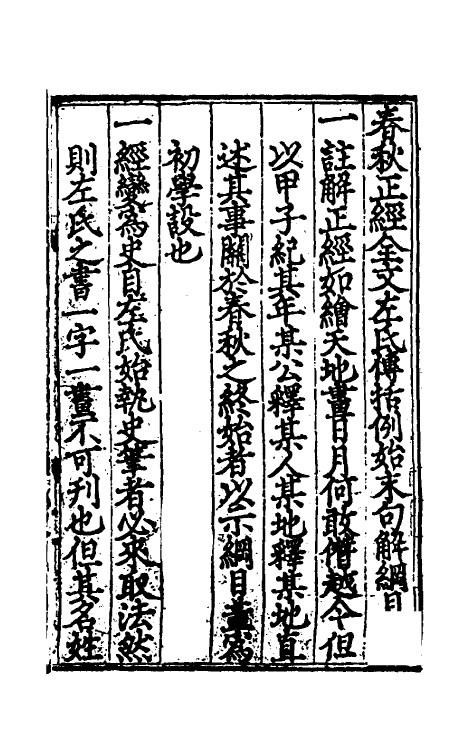 春秋正經全文左氏傳括例始末句解綱目
一註解正經如繪天地畫日月何敢僭越今但
以甲子紀其年某公釋某人某地釋某地直
述其事關於春秋之終始者以示綱目蓋爲
初學設也
一經變爲史自左氏始執史筆者必來取法然
則左氏之書一字一畫不可刋也但其名姓